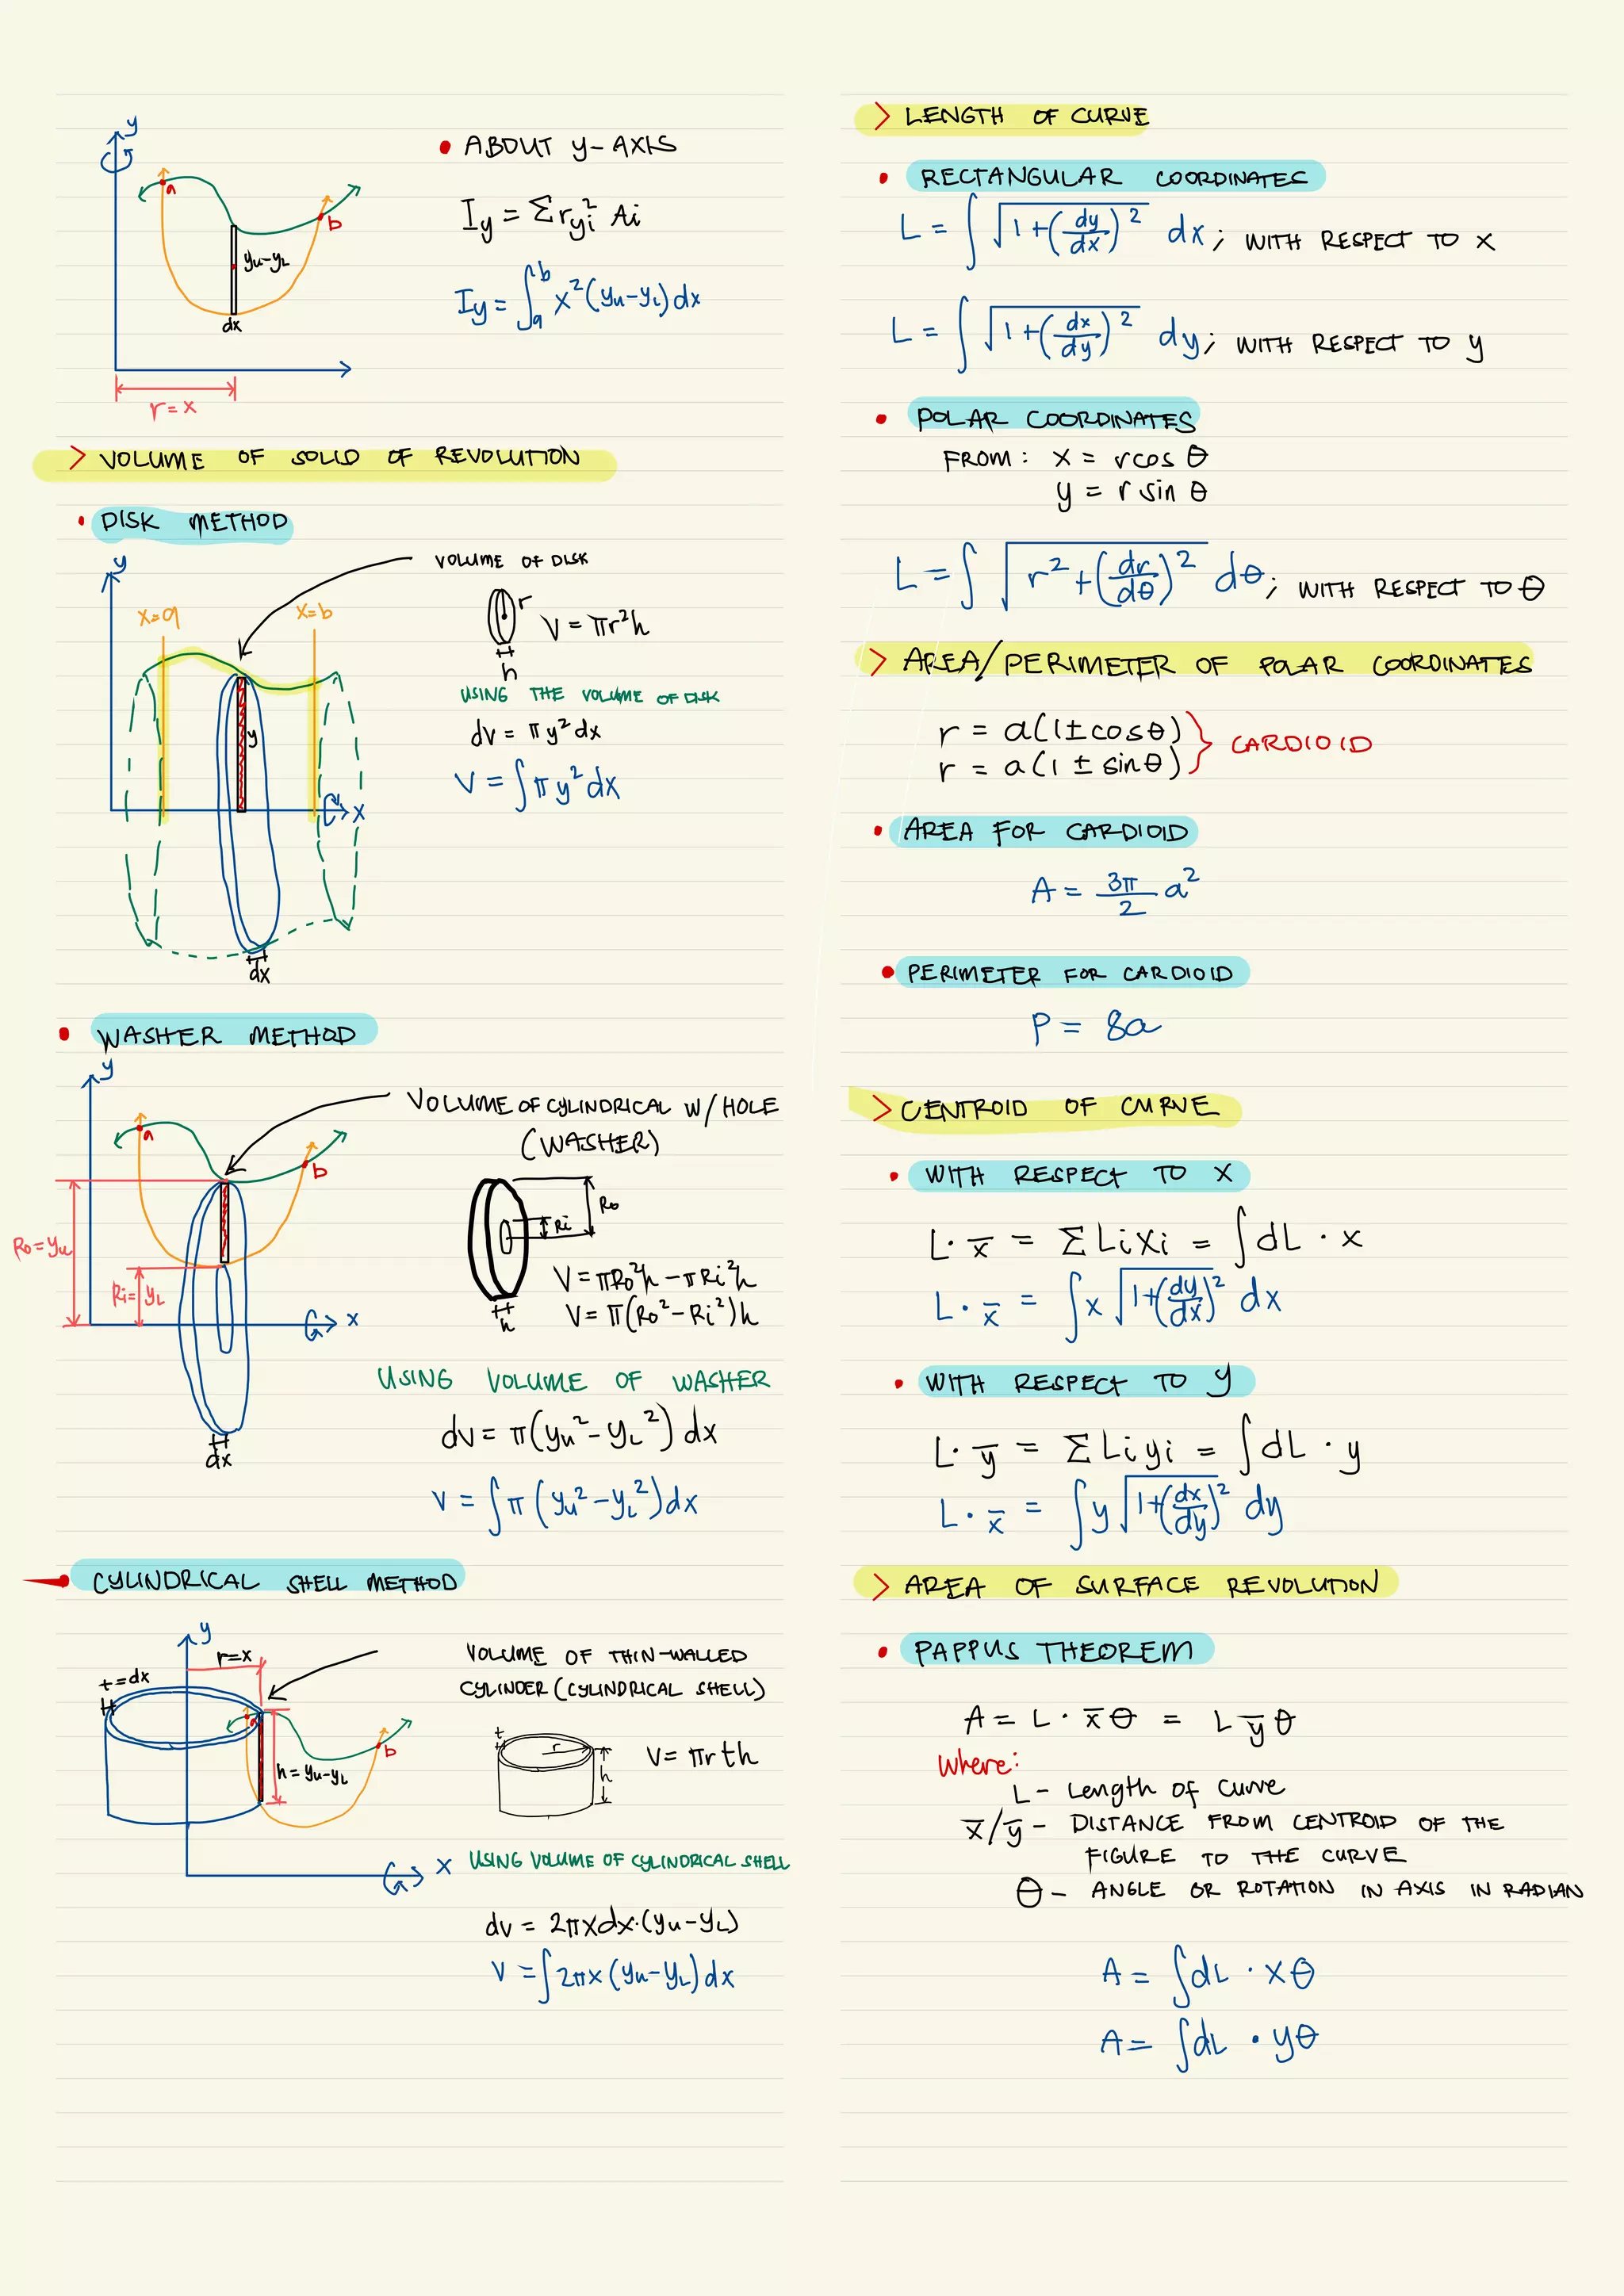 y
a
b
yu-yL
dx
r=x
• ABOUT y-AXIS
Iy = Σryi² Ai
Iy = ∫ₐᵇ x²(yu-yL)dx
> VOLUME OF SOLID OF REVOLUTION
• DISK METHOD
y
x=a
x=b
y
x
dx
VOLUME OF DISK
r
V = πr²h
h
USING THE VOLUME OF DISK
dv = πy²dx
V = ∫πy²dx
• WASHER METHOD
y
a
b
Ro=yu
Ri=yL
x
dx
VOLUME OF CYLINDRICAL W/HOLE
(WASHER)
Ro
Ri
h
V=πRo²h-πRi²h
V=π(Ro²-Ri²)h
USING VOLUME OF WASHER
dv = π(yu²-yL²)dx
V = ∫π(yu²-yL²)dx
• CYLINDRICAL SHELL METHOD
y
r=x
t=dx
a
b
h=yu-yL
x
VOLUME OF THIN-WALLED
CYLINDER (CYLINDRICAL SHELL)
t
r
h
V= πrth
USING VOLUME OF CYLINDRICAL SHELL
dv = 2πxdx·(yu-yL)
V = ∫2πx(yu-yL)dx
> LENGTH OF CURVE
• RECTANGULAR COORDINATES
L = ∫√(1+(dy/dx)²) dx; WITH RESPECT TO x
L = ∫√(1+(dx/dy)²) dy; WITH RESPECT TO y
• POLAR COORDINATES
FROM: x = rcos θ
y = r sin θ
L = ∫√(r²+(dr/dθ)²) dθ; WITH RESPECT TO θ
> AREA/PERIMETER OF POLAR COORDINATES
r = a(1±cosθ)
r = a(1±sinθ)
} CARDIOID
• AREA FOR CARDIOID
A = 3π/2 a²
• PERIMETER FOR CARDIOID
P = 8a
> CENTROID OF CURVE
• WITH RESPECT TO X
L·x̄ = ΣLiXi = ∫dL·x
L·x̄ = ∫x√(1+(dy/dx)²) dx
• WITH RESPECT TO y
L·ȳ = ΣLiyi = ∫dL·y
L·x̄ = ∫y√(1+(dx/dy)²) dy
> AREA OF SURFACE REVOLUTION
• PAPPUS THEOREM
A = L·x̄θ = Lȳθ
Where:
L - Length of curve
x̄/ȳ - DISTANCE FROM CENTROID OF THE
FIGURE TO THE CURVE
θ - ANGLE OR ROTATION IN AXIS IN RADIAN
A = ∫dL·xθ
A = ∫dL·yθ